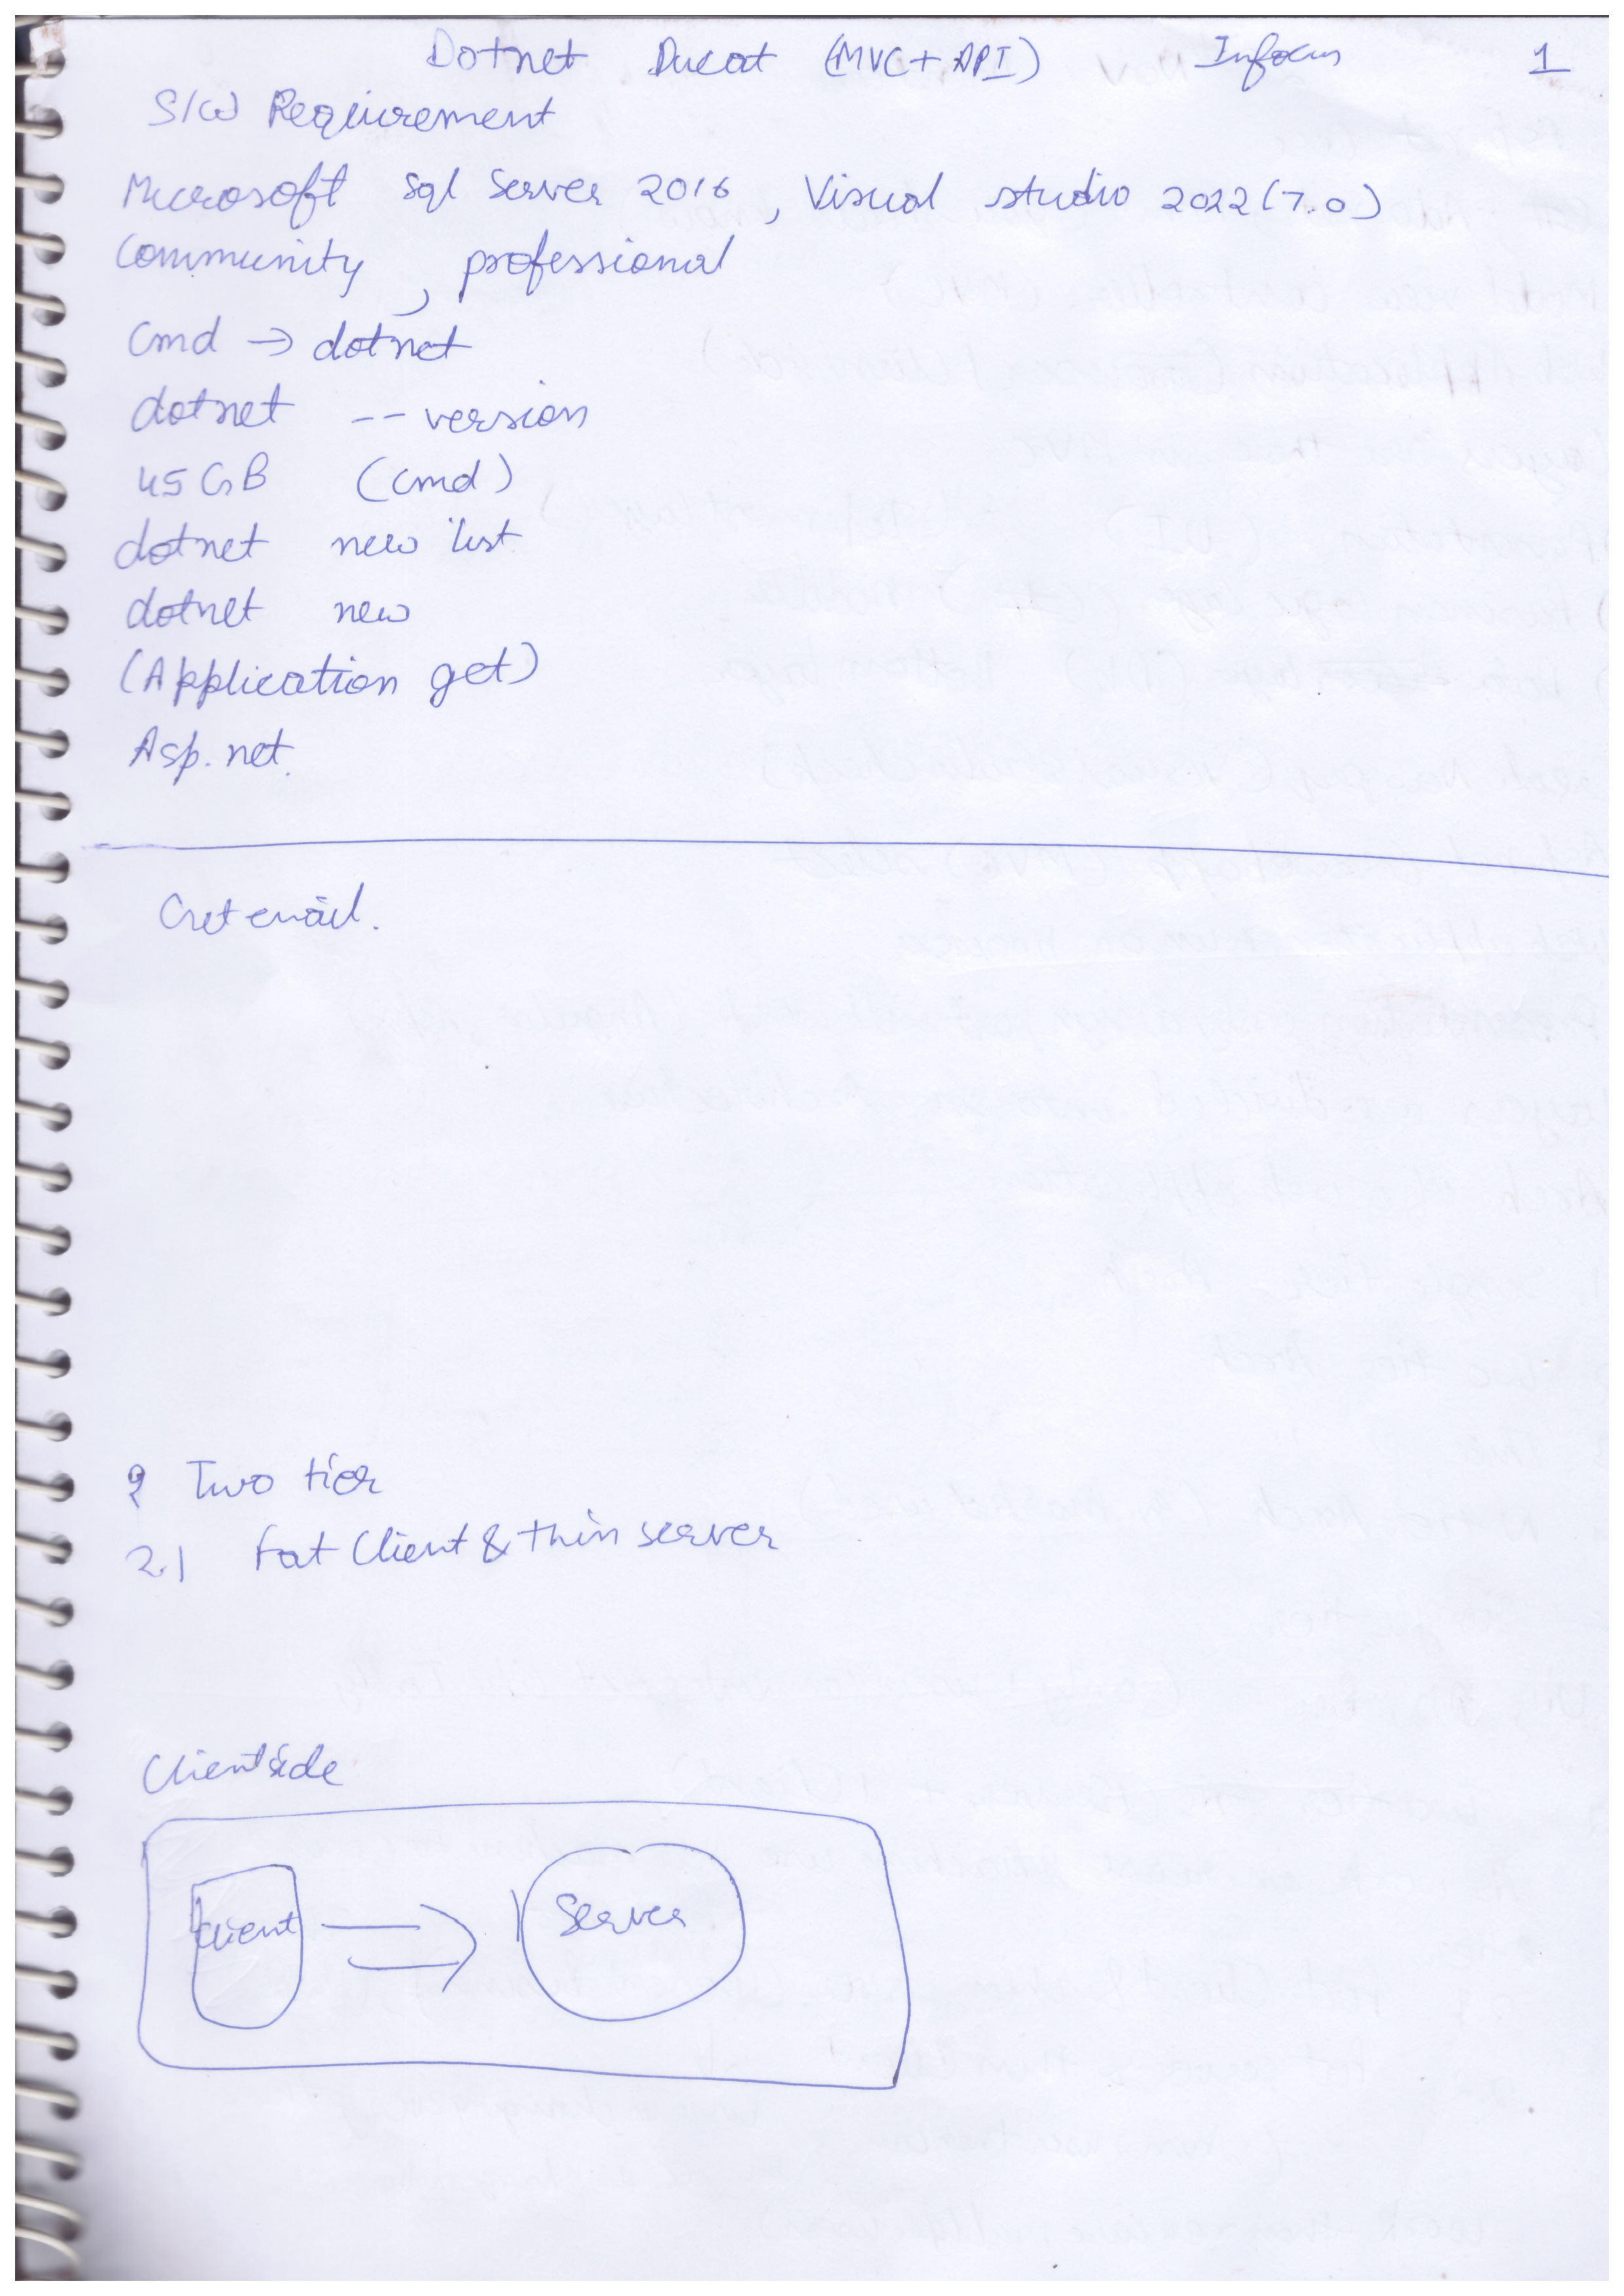 Dotnet Ducat (MVC + API) Infocus 1
S/W Requirement
Microsoft Sql Server 2016, Visual studio 2022 (7.0)
Community, professional
Cmd → dotnet
dotnet -- version
45 GB (Cmd)
dotnet new list
dotnet new
(Application get)
Asp.net.
email.
2 Two tier
2.1 Fat Client & thin server
Client side
Client Server